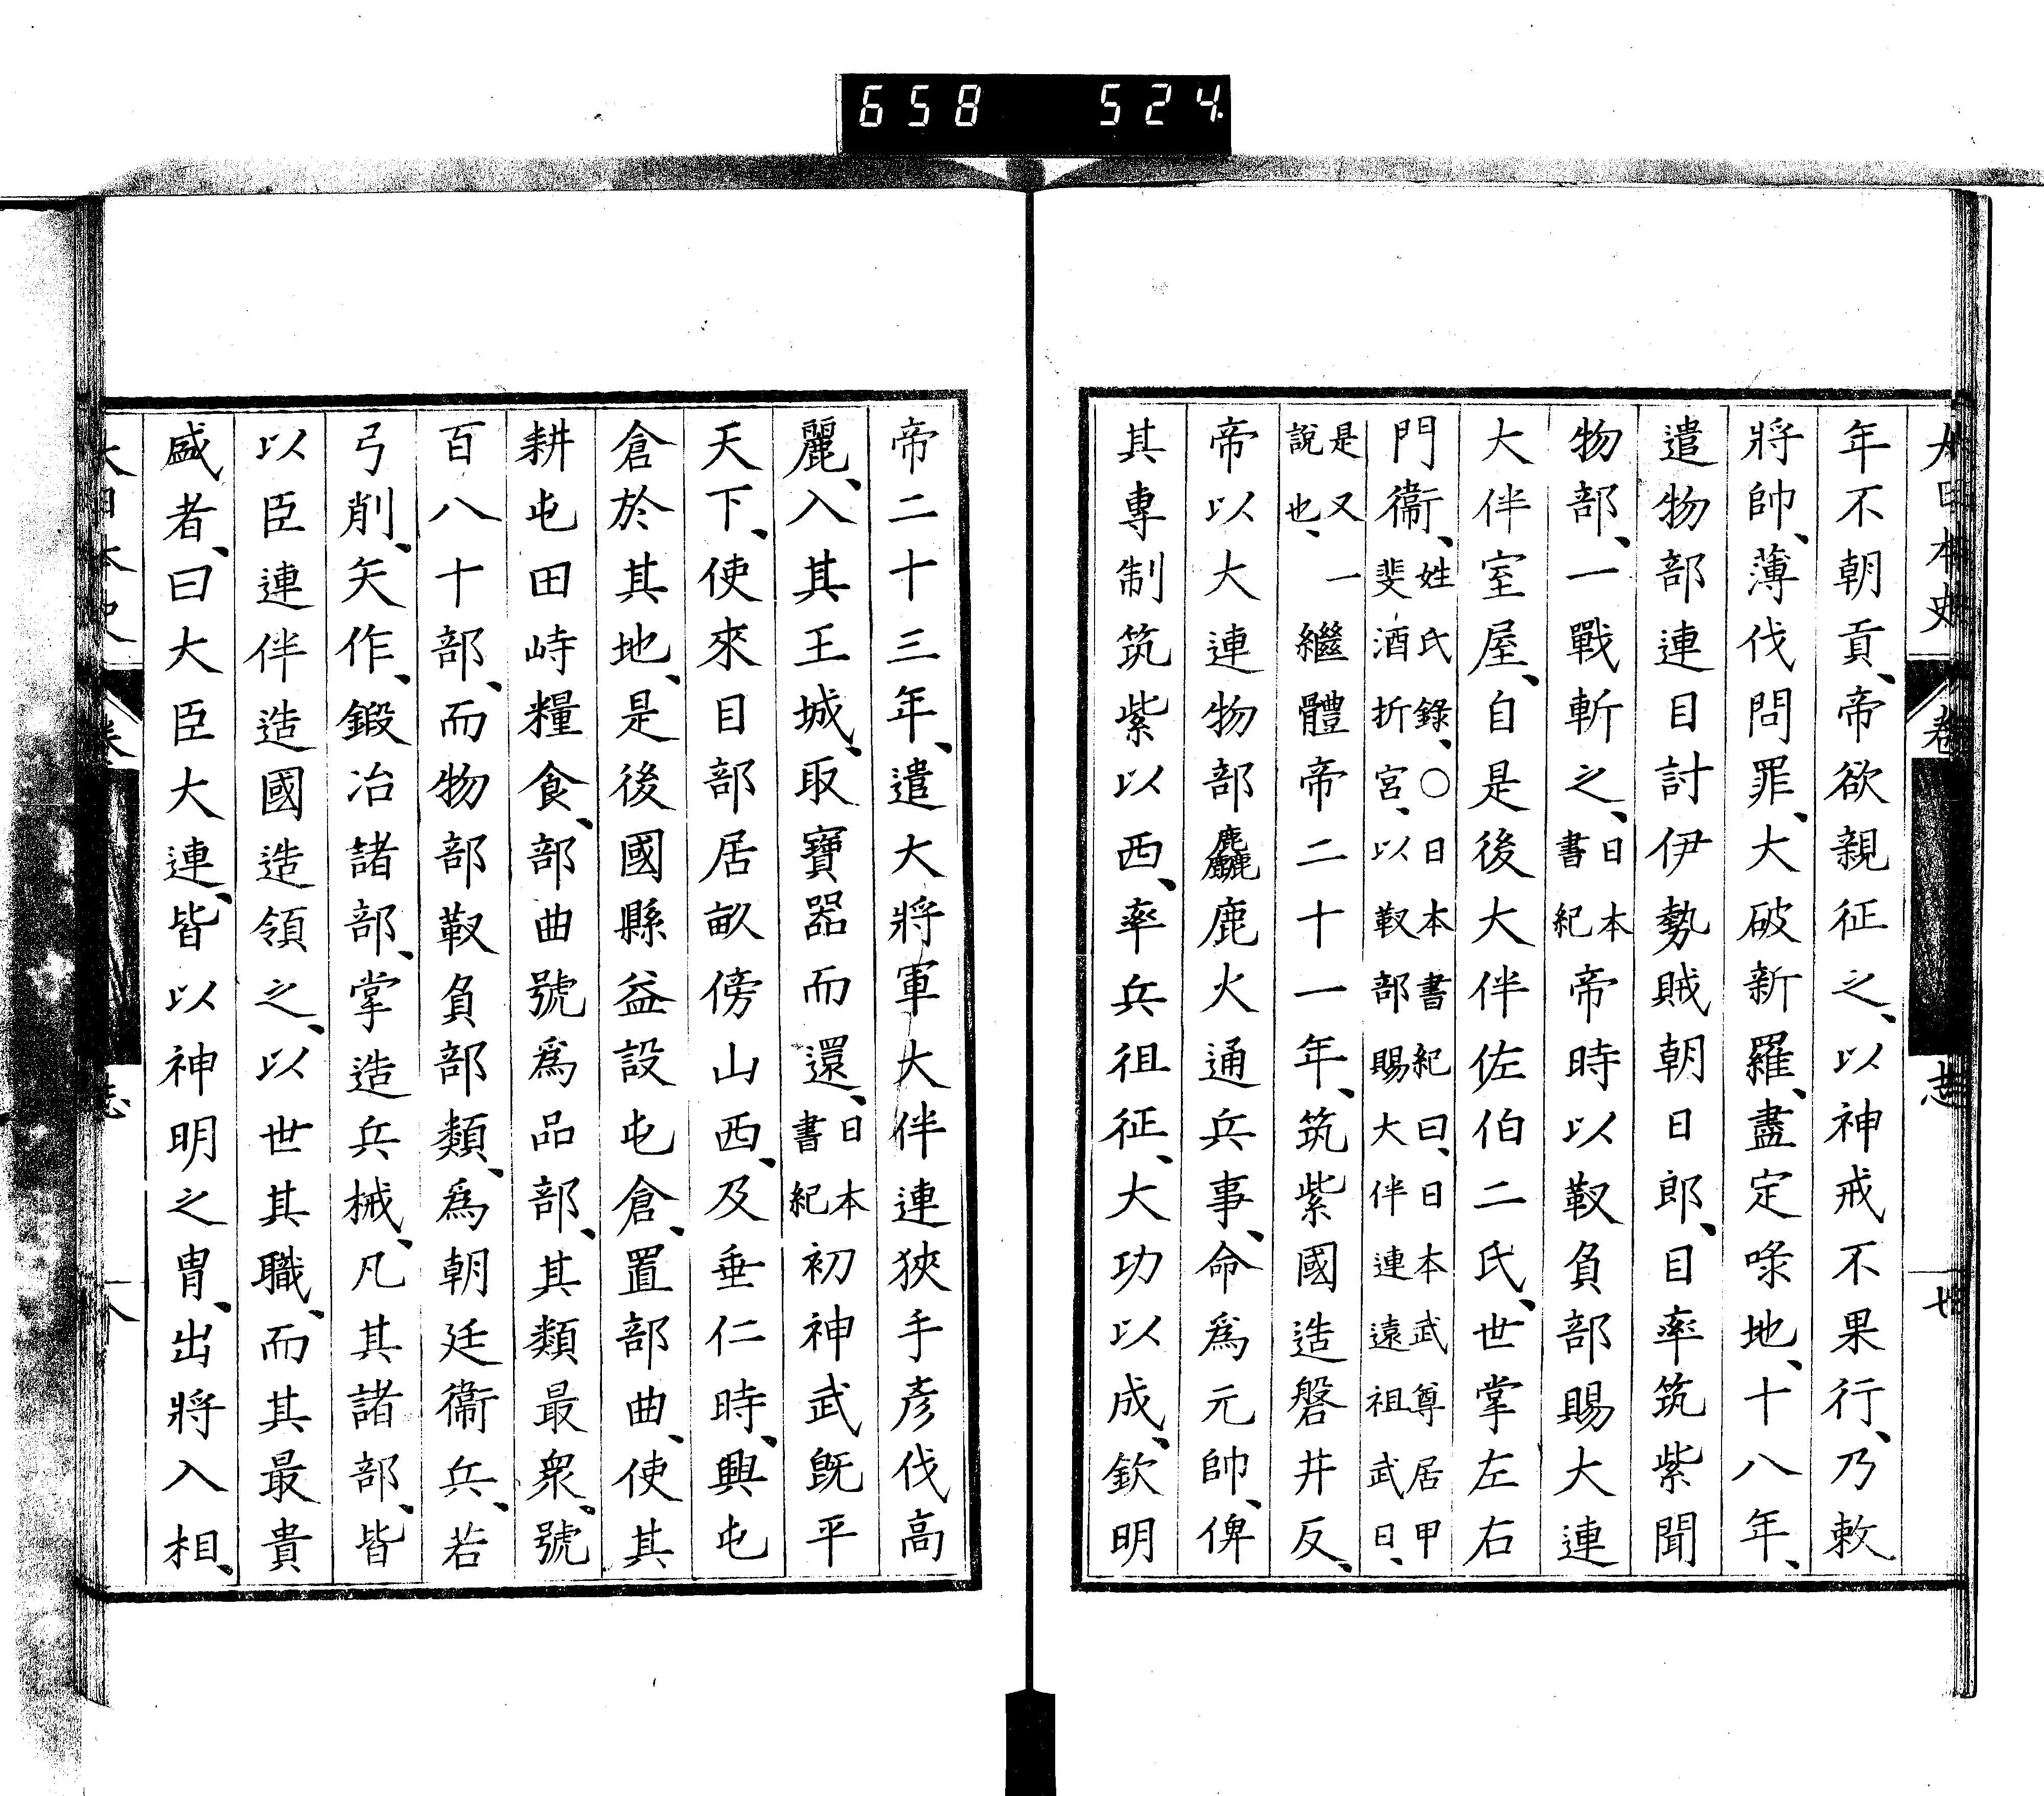 658 524
大日本史 卷 志 七
年不朝貢、帝欲親征之、以神戒不果行、乃敕
將帥、薄伐問罪、大破新羅、盡定㖨地、十八年、
遣物部連目討伊勢賊朝日郎、目率筑紫聞
物部、一戰斬之、日本書紀帝時以靫負部賜大連
大伴室屋、自是後大伴佐伯二氏、世掌左右
門衞、姓氏錄、〇日本書紀曰、日本武尊居甲斐酒折宮、以靫部賜大伴連遠祖武日、
是又一說也、繼體帝二十一年、筑紫國造磐井反、
帝以大連物部麤鹿火通兵事、命爲元帥、俾
其專制筑紫以西、率兵徂征、大功以成、欽明
帝二十三年、遣大將軍大伴連狹手彥伐高
麗、入其王城、取寶器而還、日本書紀初神武既平
天下、使來目部居畝傍山西、及垂仁時、興屯
倉於其地、是後國縣益設屯倉、置部曲、使其
耕屯田峙糧食、部曲號爲品部、其類最衆、號
百八十部、而物部靫負部類、爲朝廷衞兵、若
弓削、矢作、鍛冶諸部、掌造兵械、凡其諸部、皆
以臣連伴造國造領之、以世其職、而其最貴
盛者、曰大臣大連、皆以神明之冑、出將入相、
大日本史 卷 志 八